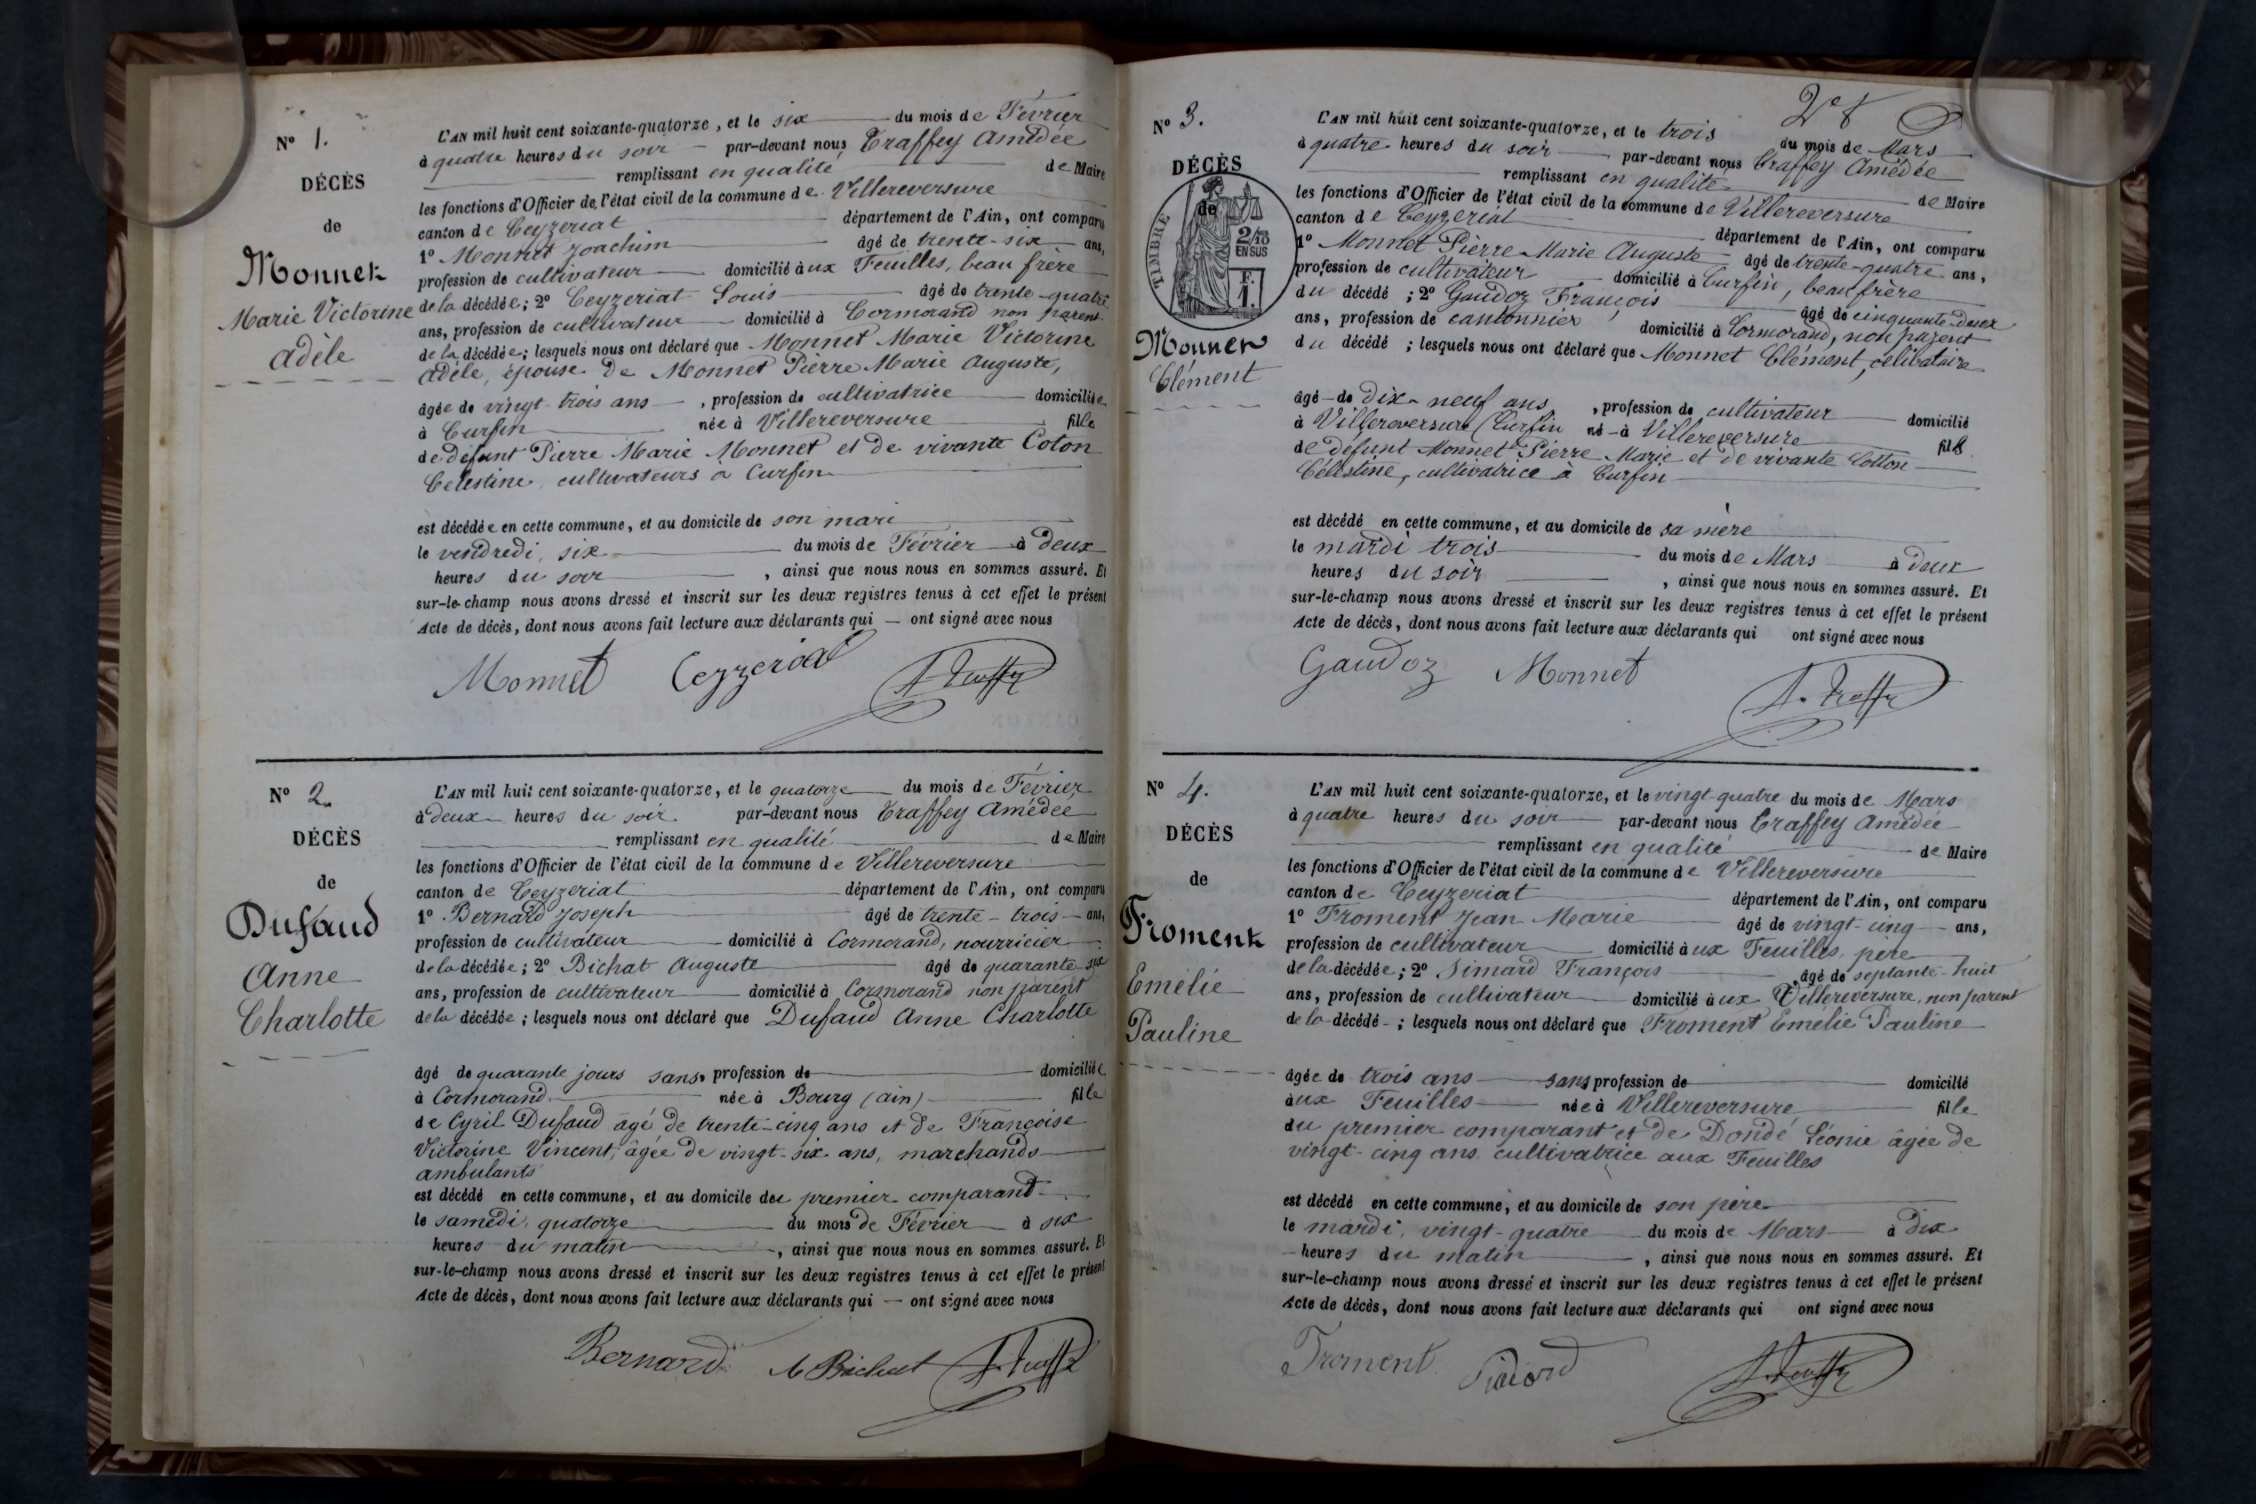 Nº 1.
DÉCÈS
de
Monnet
Marie Victorine
Adèle
L'AN mil huit cent soixante-quatorze, et le six du mois de Février
à quatre heures du soir par-devant nous Traffey Amédée
remplissant en qualité de Maire
les fonctions d'Officier de l'état civil de la commune de Villereversure
canton de Ceyzeriat département de l'Ain, ont comparu
1º Monnet Joachim âgé de trente-six ans,
profession de cultivateur domicilié aux Feuilles, beau frère
de la décédée; 2º Ceyzeriat Louis âgé de trente-quatre
ans, profession de cultivateur domicilié à Cormorand non parent
de la décédée; lesquels nous ont déclaré que Monnet Marie Victorine
Adèle, épouse de Monnet Pierre Marie Auguste,
âgée de vingt-trois ans, profession de cultivatrice domiciliée
à Curfin née à Villereversure fille
de défunt Pierre Marie Monnet et de vivante Coton
Célestine, cultivateurs à Curfin
est décédée en cette commune, et au domicile de son mari
le vendredi, six du mois de Février à deux
heures du soir, ainsi que nous nous en sommes assuré. Et
sur-le-champ nous avons dressé et inscrit sur les deux registres tenus à cet effet le présent
Acte de décès, dont nous avons fait lecture aux déclarants qui — ont signé avec nous
Monnet Ceyzeriat A. Traffey
Nº 2.
DÉCÈS
de
Dufaud
Anne
Charlotte
L'AN mil huit cent soixante-quatorze, et le quatorze du mois de Février
à deux heures du soir par-devant nous Traffey Amédée
remplissant en qualité de Maire
les fonctions d'Officier de l'état civil de la commune de Villereversure
canton de Ceyzeriat département de l'Ain, ont comparu
1º Bernard Joseph âgé de trente-trois ans,
profession de cultivateur domicilié à Cormorand, nourricier
de la décédée; 2º Bichat Auguste âgé de quarante-six
ans, profession de cultivateur domicilié à Cormorand non parent
de la décédée; lesquels nous ont déclaré que Dufaud Anne Charlotte
âgé de quarante jours sans profession de domiciliée
à Cormorand née à Bourg (ain) fille
de Cyril Dufaud âgé de trente-cinq ans et de Françoise
Victorine Vincent, âgée de vingt-six ans, marchands
ambulants
est décédé en cette commune, et au domicile du premier comparand
le samedi, quatorze du mois de Février à six
heures du matin, ainsi que nous nous en sommes assuré. Et
sur-le-champ nous avons dressé et inscrit sur les deux registres tenus à cet effet le présent
Acte de décès, dont nous avons fait lecture aux déclarants qui — ont signé avec nous
Bernard A Bichat A. Traffey
Nº 3.
DÉCÈS
de
TIMBRE
2/10
EN SUS
F.
1.
Monnet
Clément
L'AN mil huit cent soixante-quatorze, et le trois du mois de Mars
à quatre heures du soir par-devant nous Traffey Amédée
remplissant en qualité de Maire
les fonctions d'Officier de l'état civil de la commune de Villereversure
canton de Ceyzeriat département de l'Ain, ont comparu
1º Monnet Pierre Marie Auguste âgé de trente-quatre ans,
profession de cultivateur domicilié à Curfin, beau frère
du décédé; 2º Gaudoz François, âgé de cinquante-deux
ans, profession de cantonnier domicilié à Cormorand, non parent
du décédé; lesquels nous ont déclaré que Monnet Clément, célibataire
âgé de dix-neuf ans, profession de cultivateur domicilié
à Villereversure (Curfin né à Villereversure fils
de défunt Monnet Pierre Marie et de vivante Cotton
Célestine, cultivatrice à Curfin
est décédé en cette commune, et au domicile de sa mère
le mardi trois du mois de Mars à deux
heures du soir, ainsi que nous nous en sommes assuré. Et
sur-le-champ nous avons dressé et inscrit sur les deux registres tenus à cet effet le présent
Acte de décès, dont nous avons fait lecture aux déclarants qui ont signé avec nous
Gaudoz Monnet A. Traffey
Nº 4.
DÉCÈS
de
Froment
Emélie
Pauline
L'AN mil huit cent soixante-quatorze, et le vingt-quatre du mois de Mars
à quatre heures du soir par-devant nous Traffey Amédée
remplissant en qualité de Maire
les fonctions d'Officier de l'état civil de la commune de Villereversure
canton de Ceyzeriat département de l'Ain, ont comparu
1º Froment Jean Marie âgé de vingt-cinq ans,
profession de cultivateur domicilié aux Feuilles, père
de la décédée; 2º Simard François âgé de septante-huit
ans, profession de cultivateur domicilié aux Villereversure, non parent
de la décédé; lesquels nous ont déclaré que Froment Emélie Pauline
âgée de trois ans sans profession de domicilié
aux Feuilles née à Villereversure fille
du premier comparant et de Dondé Léonie âgée de
vingt-cinq ans cultivatrice aux Feuilles
est décédé en cette commune, et au domicile de son père
le mardi, vingt-quatre du mois de Mars à dix
heures du matin, ainsi que nous nous en sommes assuré. Et
sur-le-champ nous avons dressé et inscrit sur les deux registres tenus à cet effet le présent
Acte de décès, dont nous avons fait lecture aux déclarants qui ont signé avec nous
Froment A. Traffey